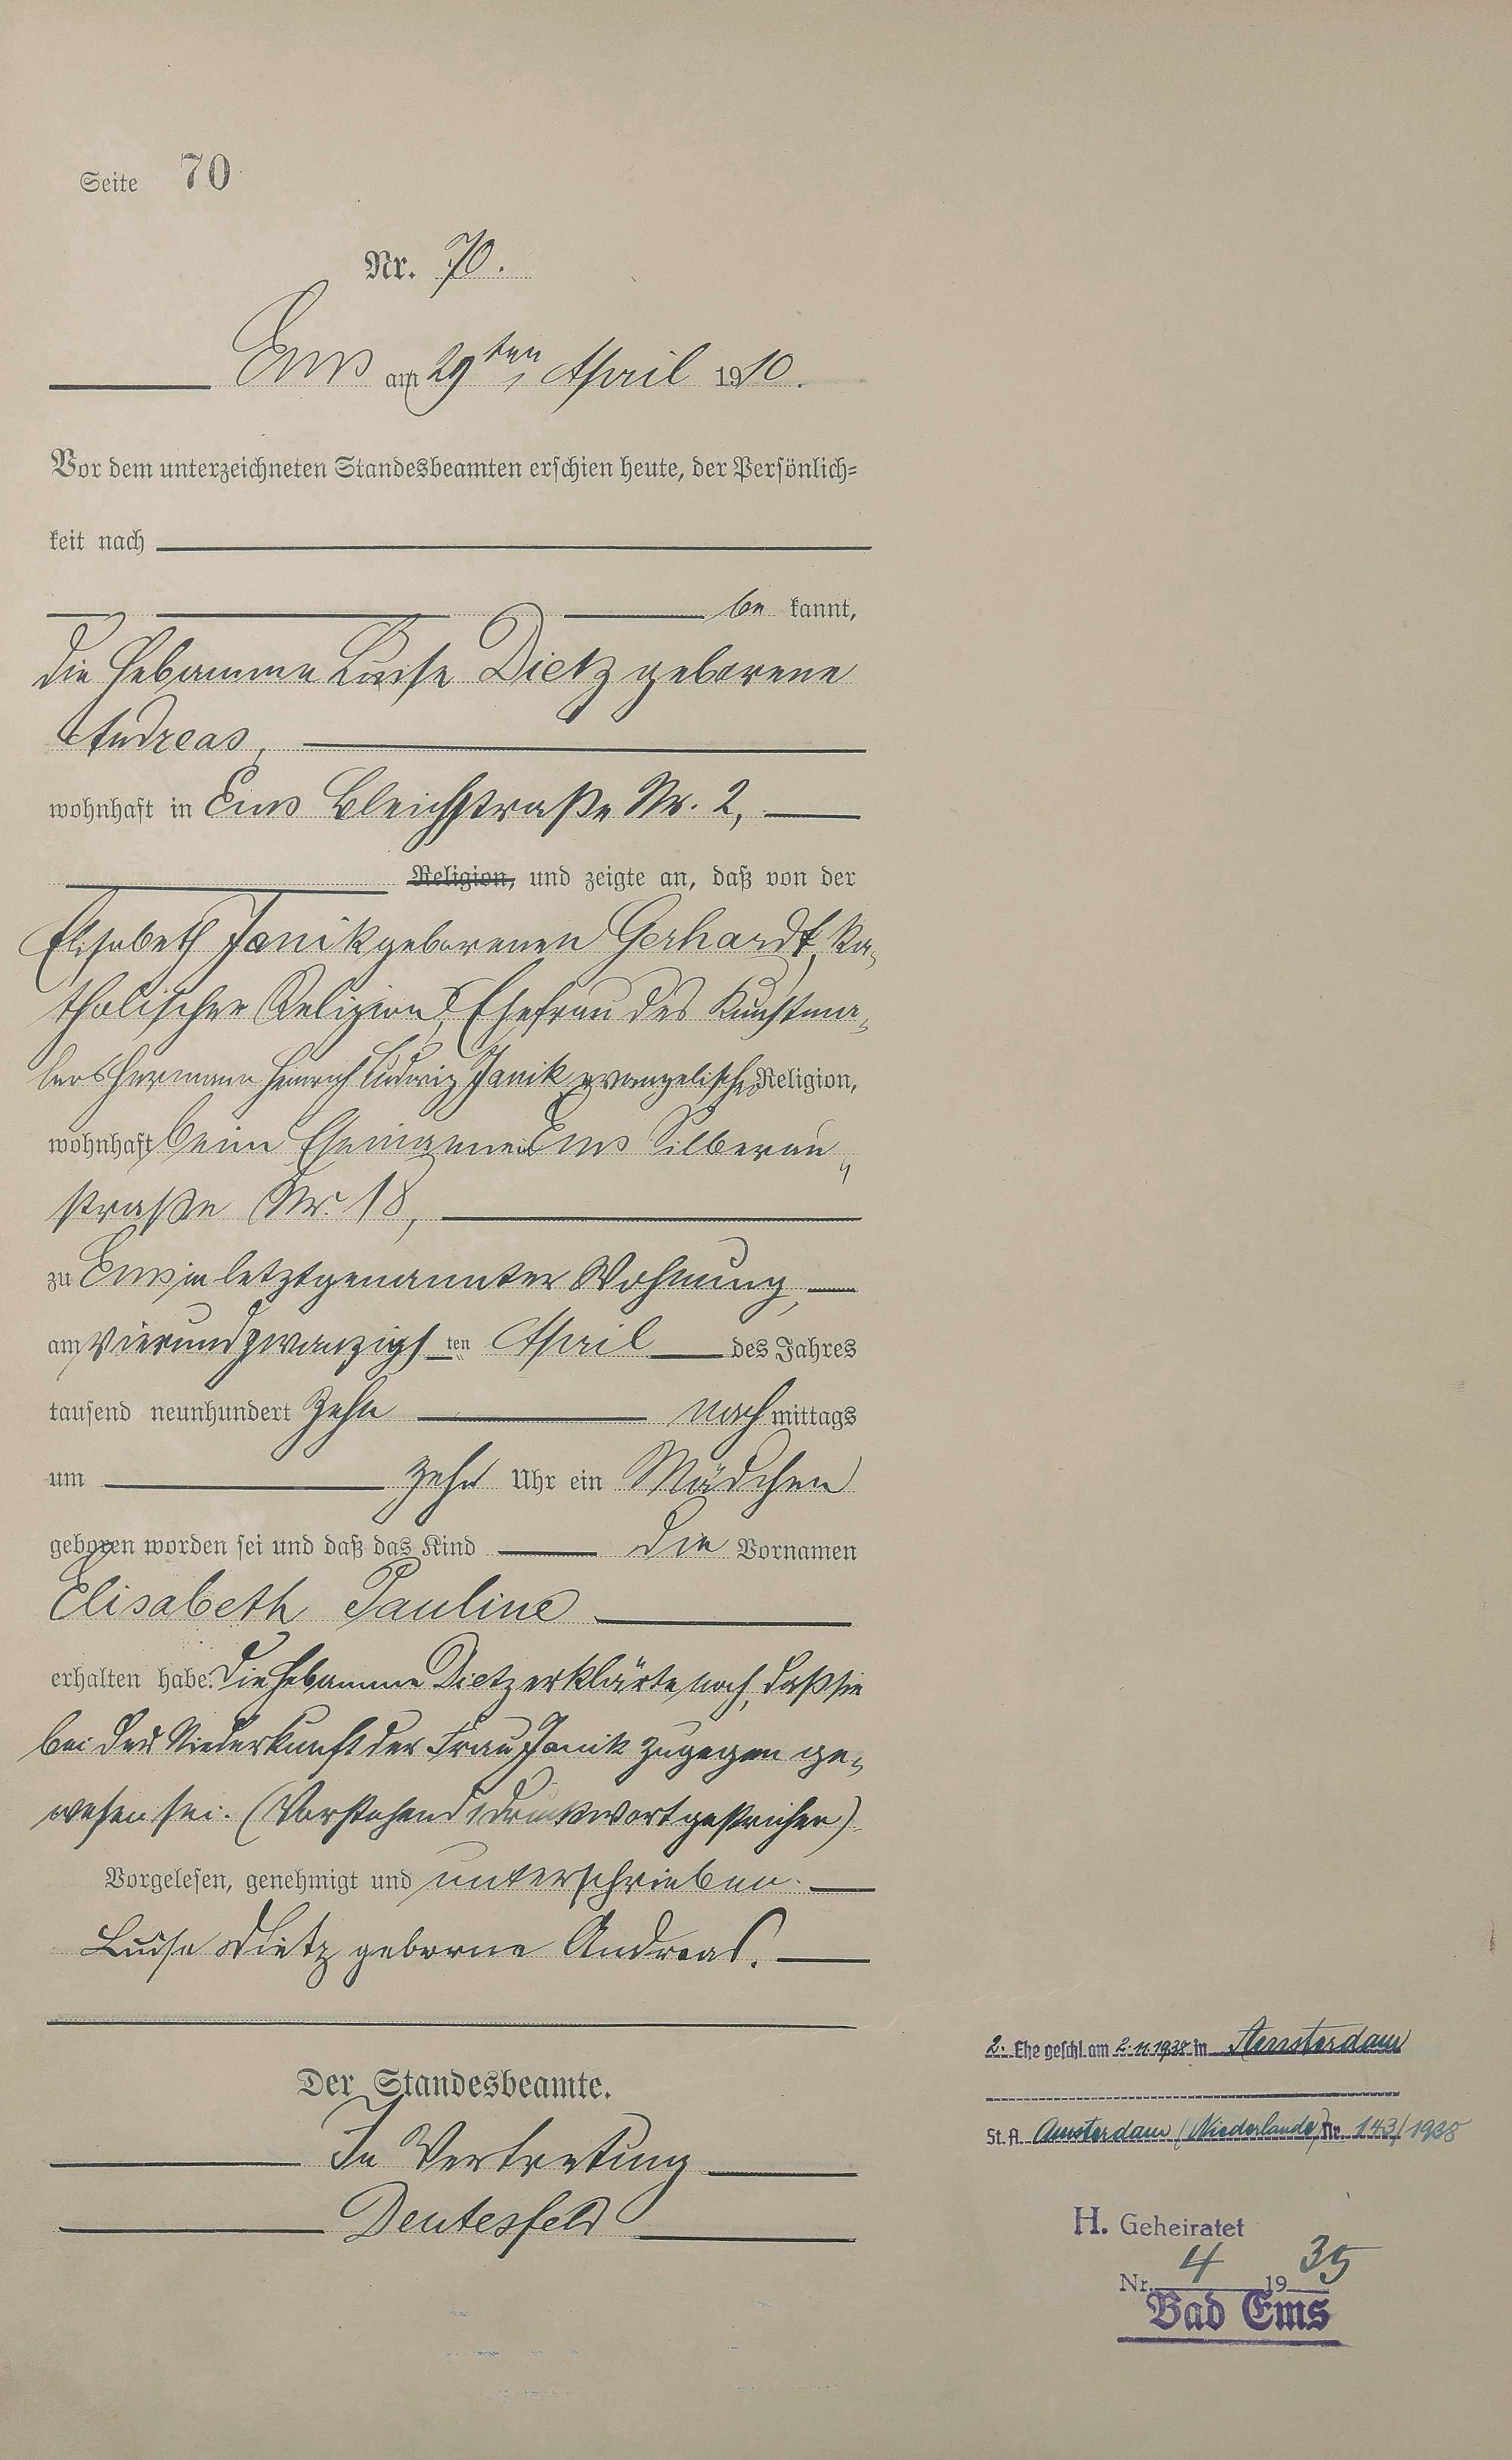 Seite 70
Nr. 70.
Ems am 29ten April 1910.
Vor dem unterzeichneten Standesbeamten erschien heute, der Persönlich=
keit nach
be kannt,
die Hebamme Luise Dietz geborene
Andreas,
wohnhaft in Ems Bleichstraße Nr. 2,
Religion, und zeigte an, daß von der
Elisabeth Janik geborenen Gerhardt, ka-
tholischer Religion, Ehefrau des Kunstma-
lers Hermann Heinrich Ludwig Janik evangelischer Religion,
wohnhaft beim Ehemanne Ems Silberau-
straße Nr. 18,
zu Ems in letztgenannter Wohnung,
am vierundzwanzigsten April des Jahres
tausend neunhundert zehn nachmittags
um zehn Uhr ein Mädchen
geboren worden sei und daß das Kind die Vornamen
Elisabeth Pauline
erhalten habe. Die Hebamme Dietz erklärte noch, daß sie
bei der Niederkunft der Frau Janik zugegen ge-
wesen sei. (Vorstehend 1 Druckwort gestrichen)
Vorgelesen, genehmigt und unterschrieben.
Luise Dietz geborne Andreas.
Der Standesbeamte.
In Vertretung
Deutesfeld
2. Ehe geschl. am 2.11.1938 in Amsterdam
St. A. Amsterdam (Niederlande) Nr. 143/1938
H. Geheiratet
Nr. 4 1935
Bad Ems